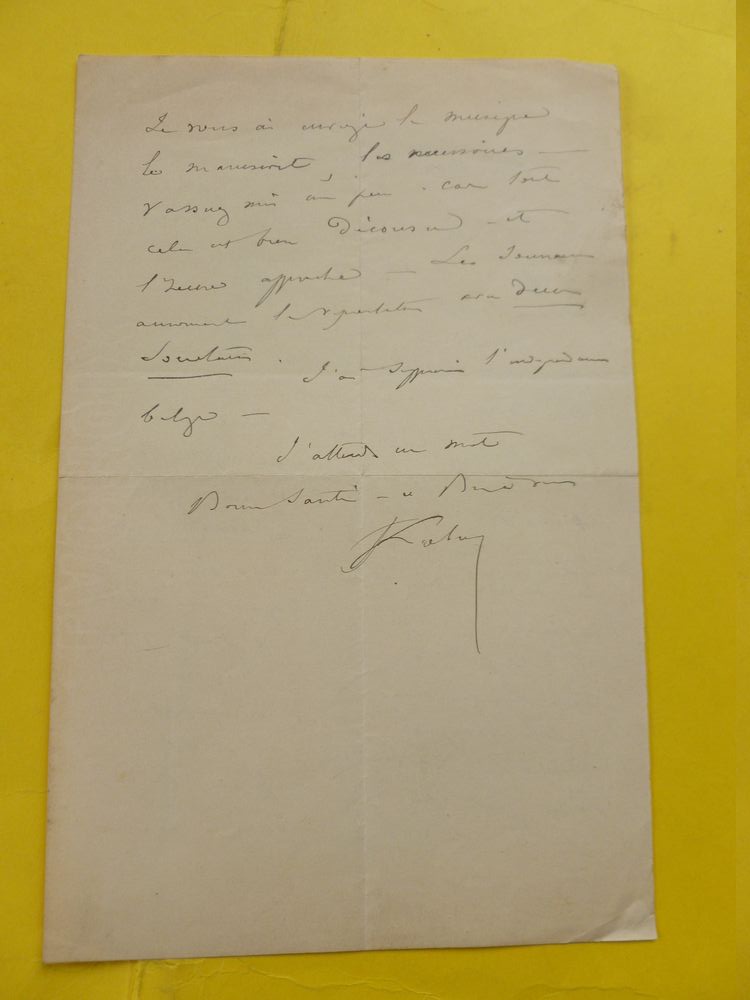 Je vous ai envoyé la musique
les manuscrits, les accessoires —
rassurez moi un peu. car tout
cela est bien Décousu — et
l'heure approche — Les Journaux
annoncent la répétition
Secrétaires. J'ai supprimé l'indépendance
belge —
J'attends un mot
Bonne santé — et